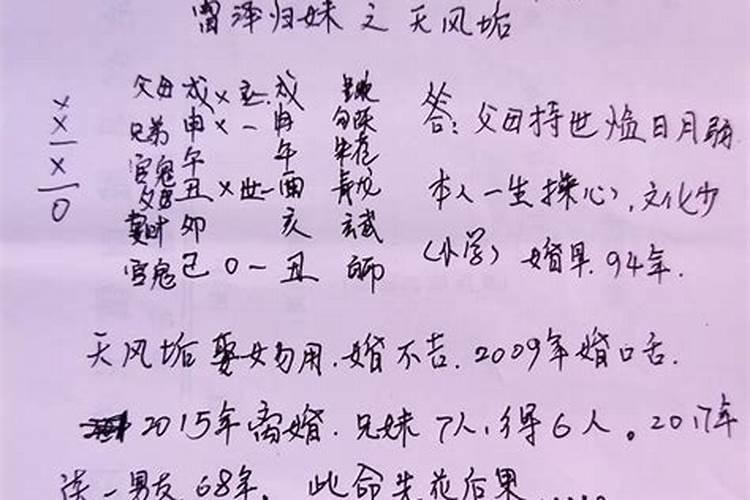 雷泽归妹之天风垢
父母 戌 x 应 戌 螣蛇
兄弟 申 x 一 申 勾陈
官鬼 午 午 朱雀
父母 丑 x 世一酉 青龙
妻财 卯 亥 玄武
官鬼 巳 0 一 丑 白虎
x
x
一
x
一
0
答:父母持世临日月弱
本人一生操心,文化少
(小学)婚早.94年.
天风垢娶女勿用.婚不吉.2009年婚口舌.
2015年离婚.兄妹7人,得6人。2017年
一男友68年,此命先花后果.....